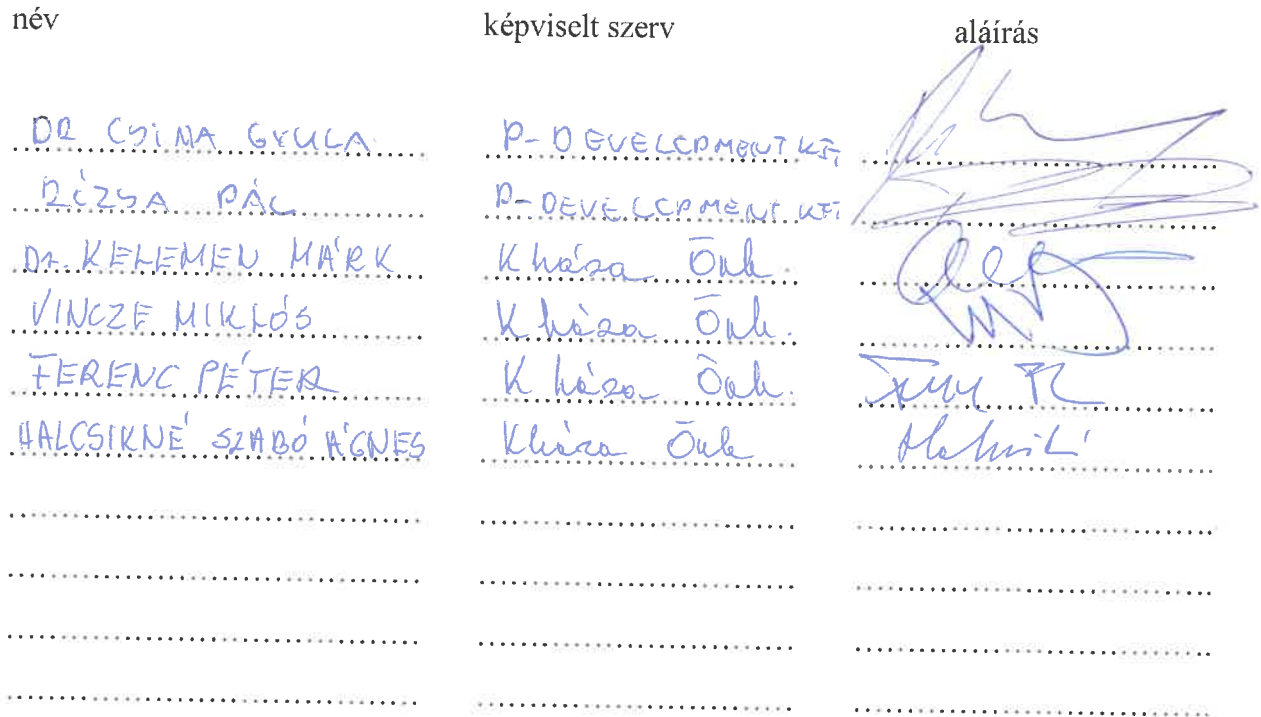 név képviselt szerv aláírás
DR CSINA GYULA P-DEVELOPMENT KFT
RÓZSA PÁL P-DEVELOPMENT KFT
Dr. KELEMEN MÁRK Kháza Önk.
VINCZE MIKLÓS Kháza Önk.
FERENC PÉTER Kháza Önk.
HALCSIKNÉ SZABÓ ÁGNES Kháza Önk